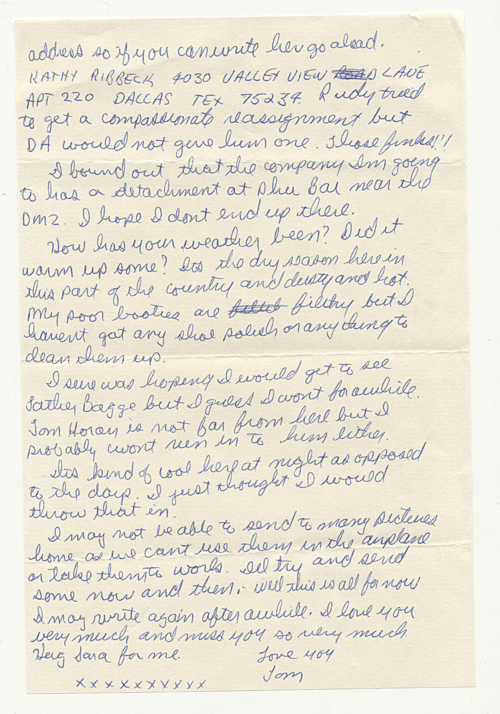 address so if you can write her go ahead.
KATHY RIBBECK 4030 VALLEY VIEW ROAD LANE
APT 220 DALLAS TEX 75234. Rudy tried
to get a compassionate reassignment but
DA would not give him one. Those finks!!!
I bound out that the company Im going
to has a detachment at Phu Bai near the
DMZ. I hope I dont end up there.
How has your weather been? Did it
warm up some? Its the dry season here in
this part of the country and dusty and hot.
My poor booties are filthy but I
havent got any shoe polish or anything to
clean them up.
I sure was hoping I would get to see
Father Bagge but I guess I wont for awhile.
Tom Horan is not far from here but I
probably wont run in to him either.
Its kind of cool here at night as opposed
to the days. I just thought I would
throw that in.
I may not be able to send to many pictures
home as we cant use them in the airplane
or take them to work. Ill try and send
some now and then. Well this is all for now
I may write again after awhile. I love you
very much and miss you so very much
Hug Sara for me. Love you
Tom
xxxxxxxxxx